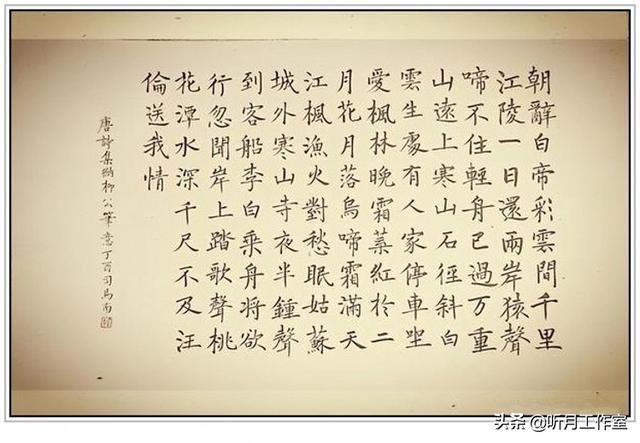 朝辭白帝彩雲間千里
江陵一日還兩岸猿聲
啼不住輕舟已過万重
山遠上寒山石徑斜白
雲生處有人家停車坐
愛楓林晚霜葉紅於二
月花月落烏啼霜滿天
江楓漁火對愁眠姑蘇
城外寒山寺夜半鍾聲
到客船李白乘舟將欲
行忽聞岸上踏歌聲桃
花潭水深千尺不及汪
倫送我情
唐詩集柳公筆意丁酉司馬南
头条@听月工作室